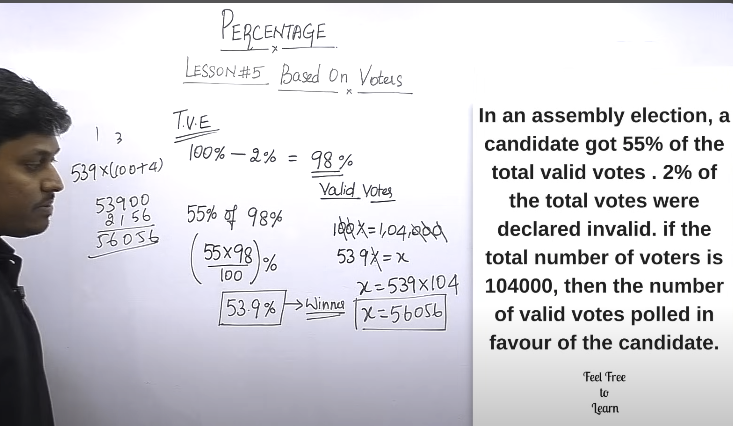 PERCENTAGE
LESSON#5 Based On Voters
T.V.E
100% - 2% = 98%
Valid Votes
55% of 98%
(55×98/100)%
53.9% → Winner
100X=1,04,000
53 9X = x
x = 539×104
x = 56056
1 3
539×(100+4)
53900
2156
56056
In an assembly election, a
candidate got 55% of the
total valid votes . 2% of
the total votes were
declared invalid. if the
total number of voters is
104000, then the number
of valid votes polled in
favour of the candidate.
Feel Free
to
Learn